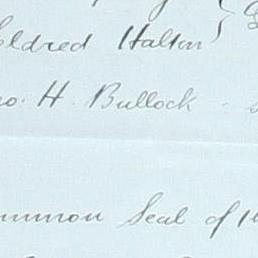 eldred Halton
o. H. Bullock
ommon Seal of